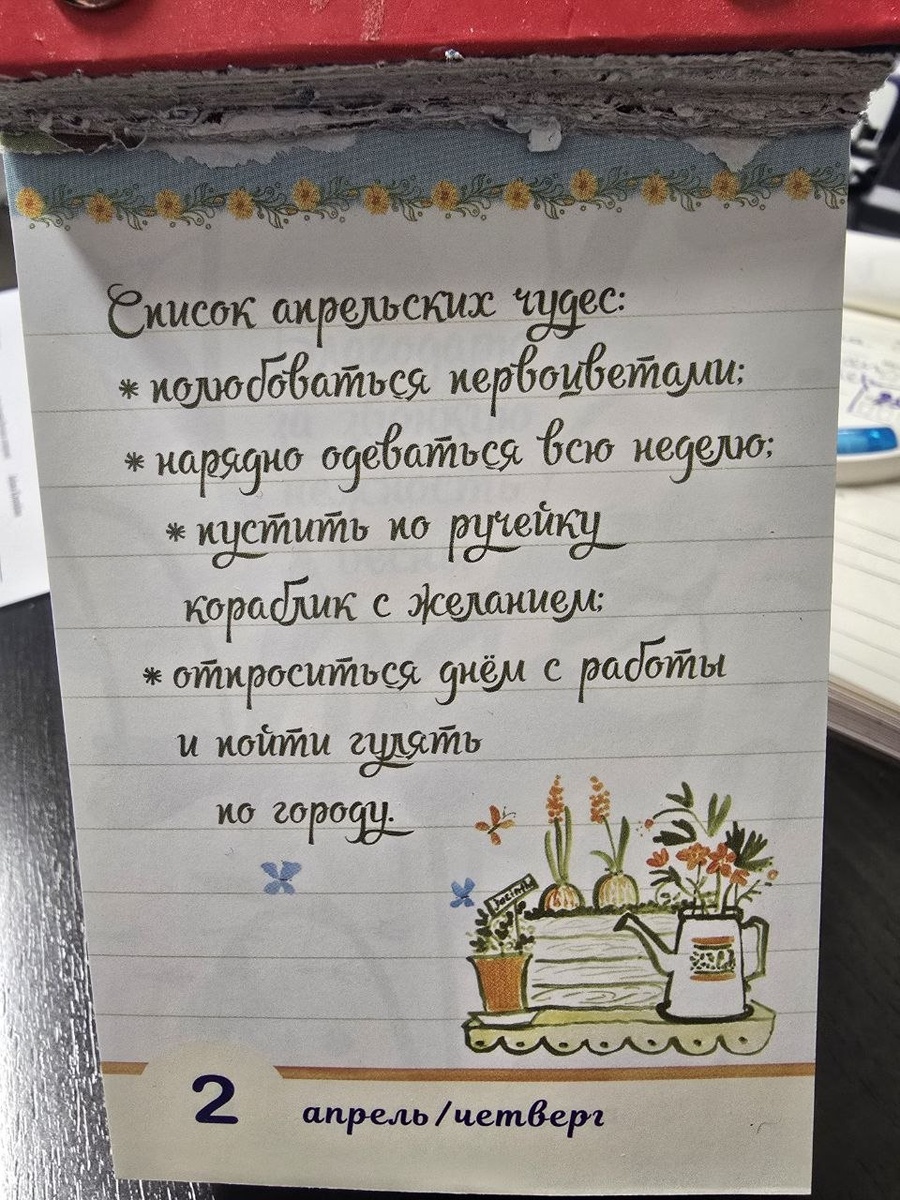 Список апрельских чудес:
* полюбоваться первоцветами;
* нарядно одеваться всю неделю;
* пустить по ручейку
кораблик с желанием;
* отпроситься днём с работы
и пойти гулять
по городу.
2
апрель/четверг